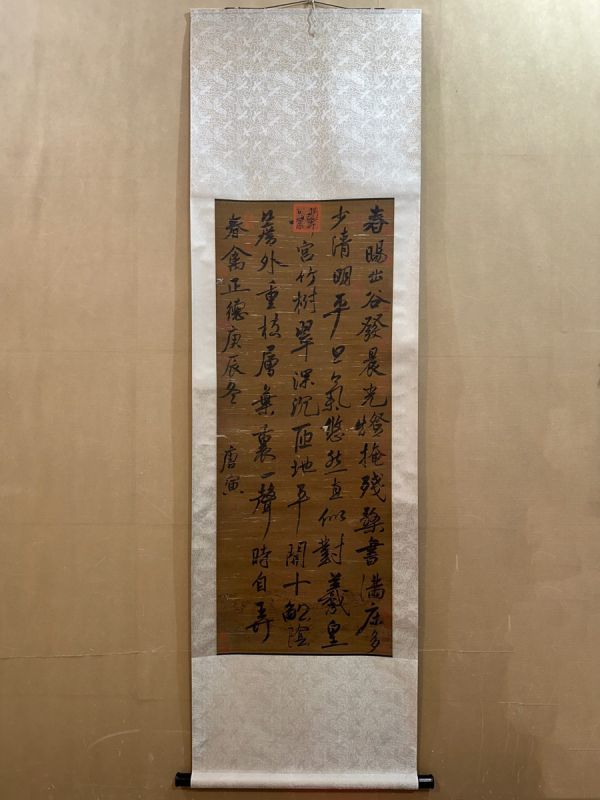 春暘出谷發晨光燈掩殘檠書滿床多
少清明平旦氣悠然直似對羲皇
宮竹樹翠深沉匝地平開十畝陰
簷外重枝層葉裏一聲時自弄
春禽正德庚辰冬 唐寅